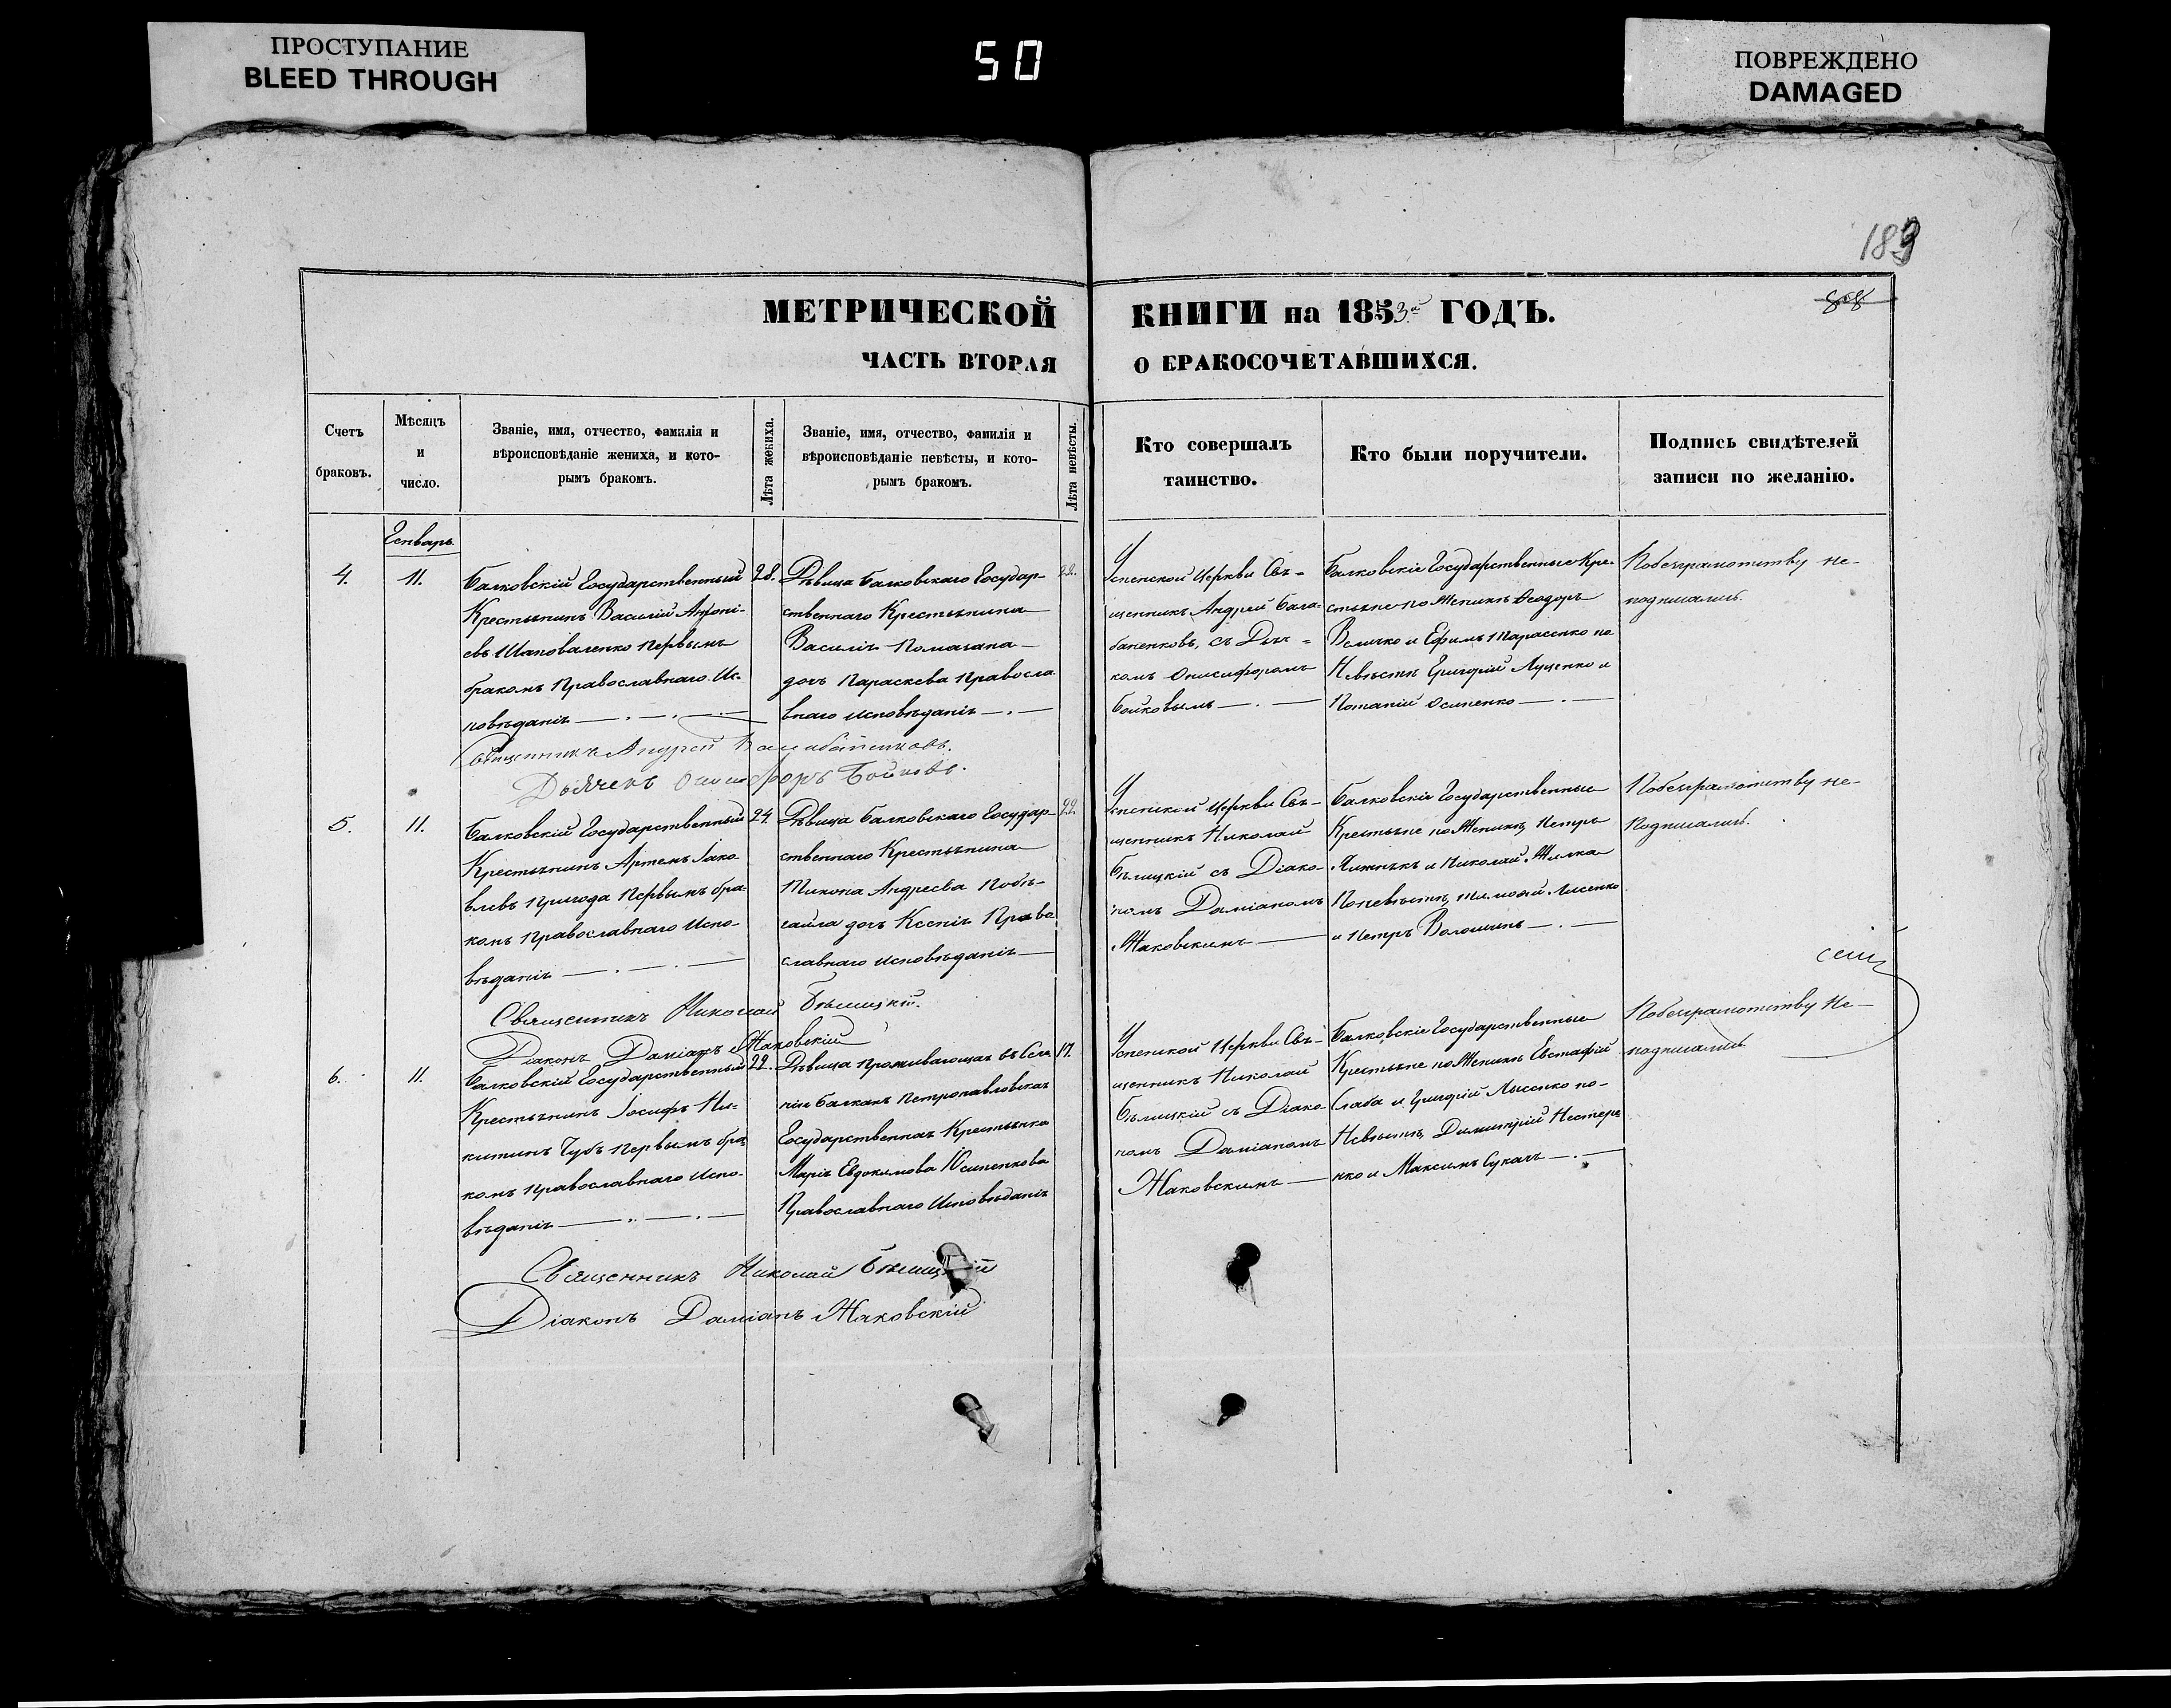 ПРОСТУПАНИЕ
BLEED THROUGH
50
ПОВРЕЖДЕНО
DAMAGED
189
МЕТРИЧЕСКОЙ КНИГИ на 1853й ГОДЪ.
ЧАСТЬ ВТОРАЯ О БРАКОСОЧЕТАВШИХСЯ.
Счетъ браковъ.
Мѣсяцъ и число.
Званіе, имя, отчество, фамилія и
вѣроисповѣданіе жениха, и кото-
рымъ бракомъ.
Лѣта жениха.
Званіе, имя, отчество, фамилія и
вѣроисповѣданіе невѣсты, и кото-
рымъ бракомъ.
Лѣта невѣсты.
Кто совершалъ
таинство.
Кто были поручители.
Подпись свидѣтелей
записи по желанію.
Генварь.
4.
11.
Балковскій Государственный
Крестьянинъ Василій Антоні-
евъ Шаповаленко первымъ
бракомъ Православнаго Ис-
повѣданія
28.
Дѣвица Балковскаго Государ-
ственнаго Крестьянина
Василія Помазана
дочь Параскева Правосла
внаго исповѣданія
22.
Успенской Церкви Свя-
щенникъ Андрей Бала-
баненковъ, съ Дьяч-
комъ Онисифоромъ
Бойковымъ
Балковскіе Государственные Кре-
стьяне по Женихѣ Ѳеодоръ
Величко и Ефимъ Тарасенко по
Невѣстѣ Григорій Луценко и
Потапій Осипенко
Побезграмотству не-
подписались.
Священникъ Андрей Балабаненковъ.
Дьячекъ Онисифоръ Бойковъ.
5.
11.
Балковскій Государственный
Крестьянинъ Артемъ Іако-
влевъ Пригода Первымъ бра-
комъ Православнаго Испо-
вѣданія
24.
Дѣвица Балковскаго Государ-
ственнаго Крестьянина
Тихона Андреева
дочь Ксенія Право
славнаго исповѣданія
22.
Успенской Церкви Свя-
щенникъ Николай
Бѣлицкій съ Діако-
номъ Даміаномъ
Жаковскимъ
Балковскіе Государственные
Крестьяне по Женихѣ Петръ
и Николай Жилка
Поневѣстѣ Тимоѳей Лисенко
и Петръ Волошинъ
Побезграмотству не-
подписались.
Священникъ Николай Бѣлицкій.
Діаконъ Даміанъ Жаковскій
6.
11.
Балковскій Государственный
Крестьянинъ Іосифъ Ни-
китинъ Чубъ первымъ бра
комъ Православнаго Испо-
вѣданія
22.
Дѣвица Проживающая въ Селе
ніи Балкахъ Петропавловская
Государственная Крестьянка
Марія Евдокимова Юсипенкова
Православнаго Исповѣданія
17.
Успенской Церкви Свя-
щенникъ Николай
Бѣлицкій съ Діако-
номъ Даміаномъ
Жаковскимъ
Балковскіе Государственные
Крестьяне по Женихѣ Евстафій
Слаба и Григорій Лысенко по-
Невѣстѣ Димитрій Нестере
нко и Максимъ Сукачъ
Побезграмотству Не-
подписались.
Священникъ Николай Бѣлицкій
Діаконъ Даміанъ Жаковскій